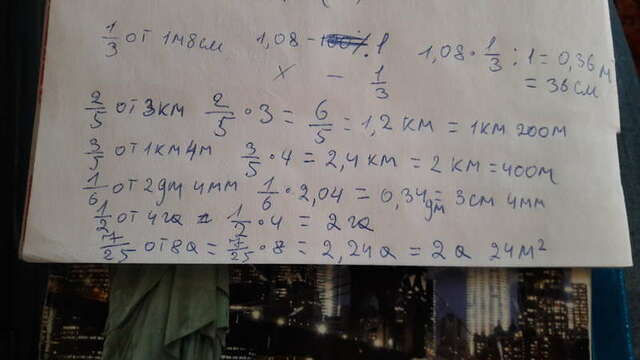 1/3 от 1м 8см 1,08 - 1 1,08 · 1/3 : 1 = 0,36 м
x - 1/3 = 36 см
2/5 от 3км 2/5 · 3 = 6/5 = 1,2 км = 1км 200м
3/5 от 1км 4м 3/5 · 4 = 2,4 км = 2 км = 400м
1/6 от 2дм 4мм 1/6 · 2,04 = 0,34 дм = 3см 4мм
1/2 от 4га = 1/2 · 4 = 2 га
7/25 от 8а = 7/25 · 8 = 2,24а = 2а 24м²